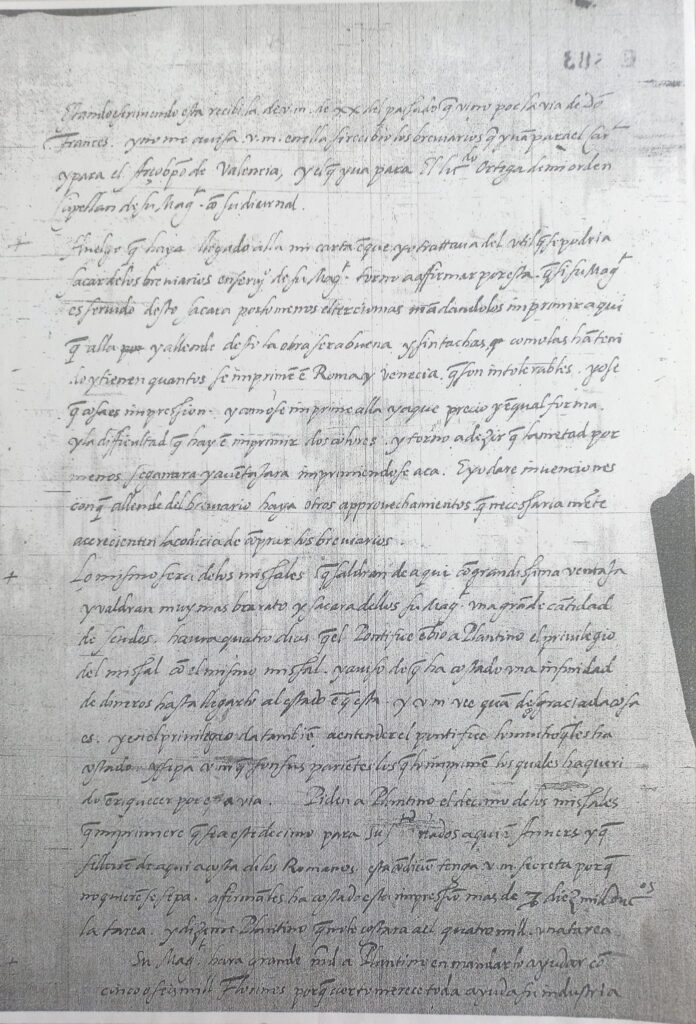 Estando escriuiendo esta recibi la de v.m. de xx del pasado q̃ vino por la via de dõ
Frances. y no me auisa v.m. en ella si recibio los breuiarios q̃ yuã para el Car.l
y para el Arçobpõ de Valencia, y el q̃ yua para el lic.do Ortega de mi orden
Capellan de su Mag.t cõ su diurnal.
Huelgo q̃ haya llegado alla mi carta ẽ que yo trattaua del vtil q̃ se podria
sacar de los breuiarios en serui.o de su Mag.t torno a affirmar por esta q̃ si su Mag.t
es seruido desto sacara por lo menos el tercio mas mãdandolos imprimir aqui
q̃ alla y allende de si la obra sera buena y sin tachas, como las hã teni
do y tienen quantos se imprimẽ ẽ Roma y Venecia. q̃ son intolerables. yo se
q̃ cosa es impression. y como se imprime alla y a que precio y en qual forma.
y la difficultad q̃ hay ẽ imprimir dos colores. y torno a dezir q̃ la metad por
menos se ganara y auẽtajara imprimiendose aca. E yo dare inuenciones
con q̃ allende del breuiario haya otros approuechamientos q̃ necessariamẽte
acrecienten la codicia de cõprar los breuiarios.
Lo mismo sera de los missales q̃ saldran de aqui cõ grandissima ventaja
y valdran muy mas barato y sacara dellos su Mag.t vna grãde cãtidad
de scudos. haura quatro dias q̃ el Pontifice ẽbio a Plantino el priuilegio
del missal cõ el mismo missal. y auiso de q̃ ha costado vna infinidad
de dineros hasta llegarlo al estado ẽ q̃ esta. y v.m. vee quã desgraciada cosa
es. y en el priuilegio da tambiẽ a entender el pontifice lo mucho q̃ les ha
costado y sepa v.m. q̃ son sus pariẽtes los q̃ lo imprimẽ los quales ha queri
do ẽriquecer por esta via. Piden a Plantino el decimo de los missales
q̃ imprimiere q̃ sea este decimo para sus criados aqui ẽ Anuers y q̃
se lleuẽ de aqui a costa de los Romanos. esta cõdiciõ tenga v.m. secreta porq̃
no quierẽ se sepa. afirmãles ha costado esta impressiõ mas de diez mil duc.os
la tarea. y dizeme Plantino q̃ no le costara a el quatro mil vna tarea
Su Mag.t hara grande md a Plantino en mandarlo ayudar cõ
cinco o seis mill Florines porq̃ cierto merece toda ayuda su industria